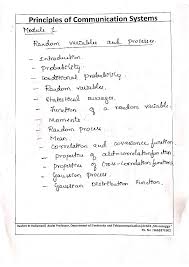 Principles of Communication Systems
Module 1
Random variables and processes
- Introduction
- Probability.
- Conditional probability.
- Random variables.
- Statistical averages.
Function of a random variable.
Moments.
- Random process
- Mean
- Correlation and covariance function
- properties of autocorrelation function
- properties of Cross-correlation function
- Gaussian process
- Gaussian Distribution Function.